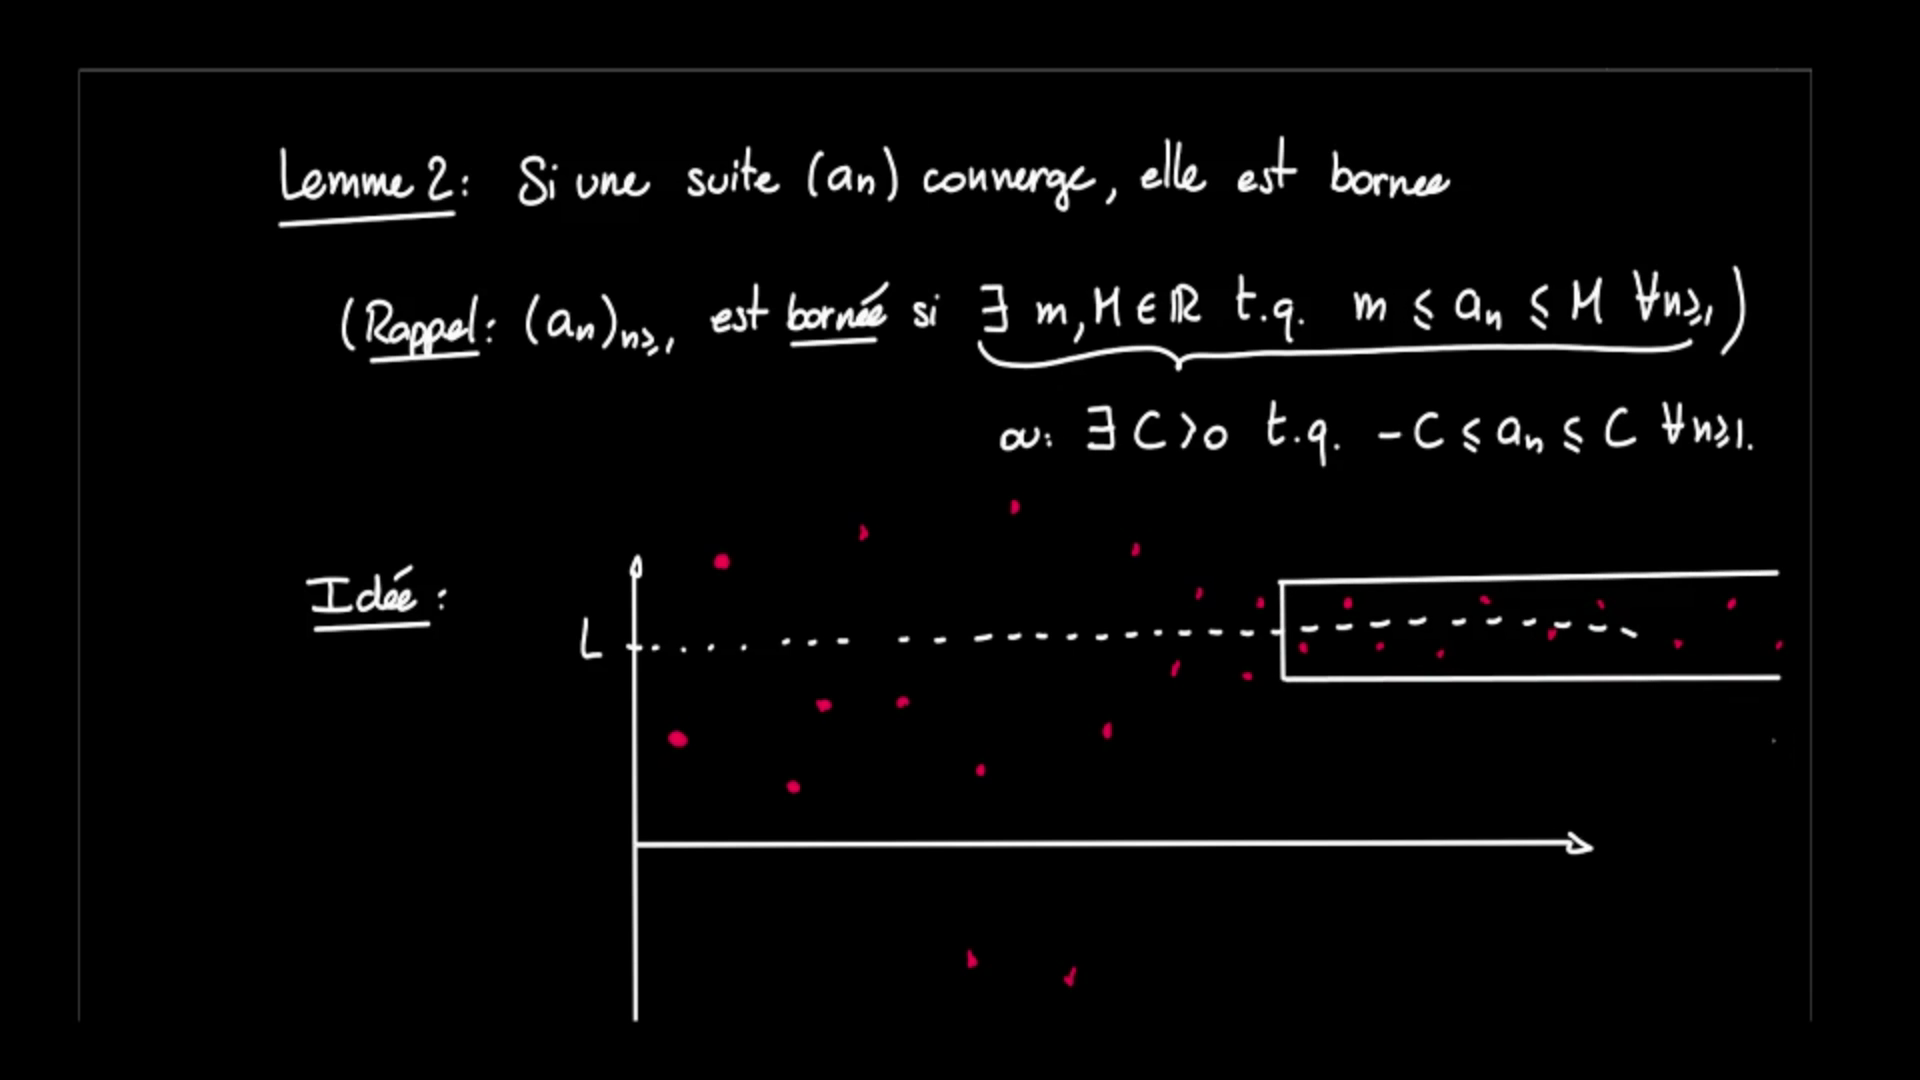 Lemme 2: Si une suite (an) converge, elle est bornee
(Rappel: (an)n≥1 est bornée si ∃ m, M ∈ ℝ t.q. m ≤ an ≤ M ∀n≥1)
ou: ∃ C>0 t.q. -C ≤ an ≤ C ∀n≥1.
Idée:
L